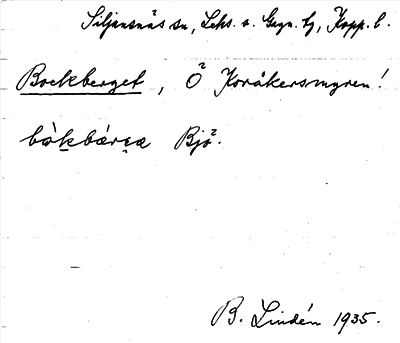 Siljansnäs sn, Leks. o. Gagn. tg, Kopp. l.
Bockberget, Ö Koråkersmyren!
bàkbárɛa Bjö.
B. Lindén 1935.